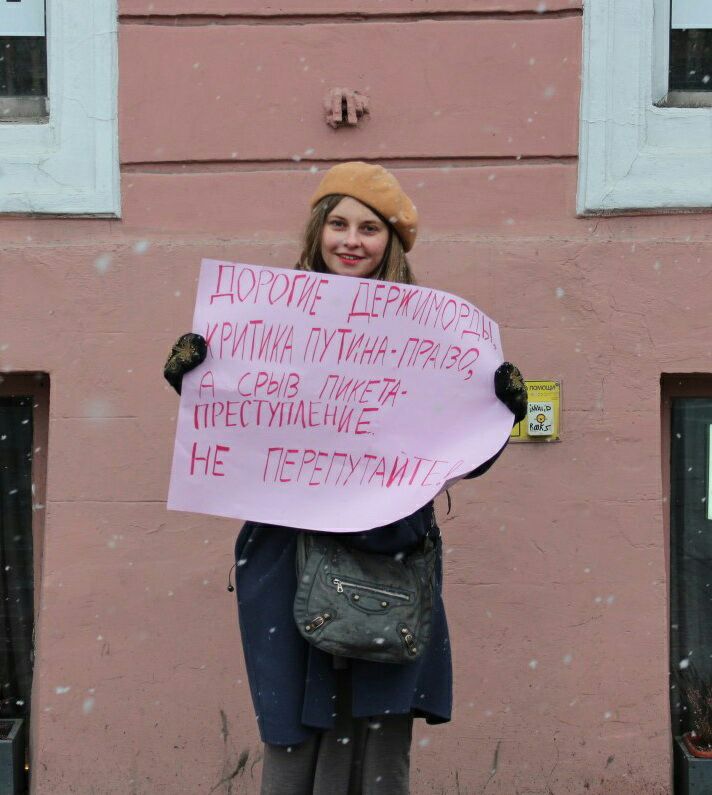 ДОРОГИЕ ДЕРЖИМОРДЫ,
КРИТИКА ПУТИНА-ПРАВО,
А СРЫВ ПИКЕТА-
ПРЕСТУПЛЕНИЕ.
НЕ ПЕРЕПУТАЙТЕ!
ПОМОЩИ